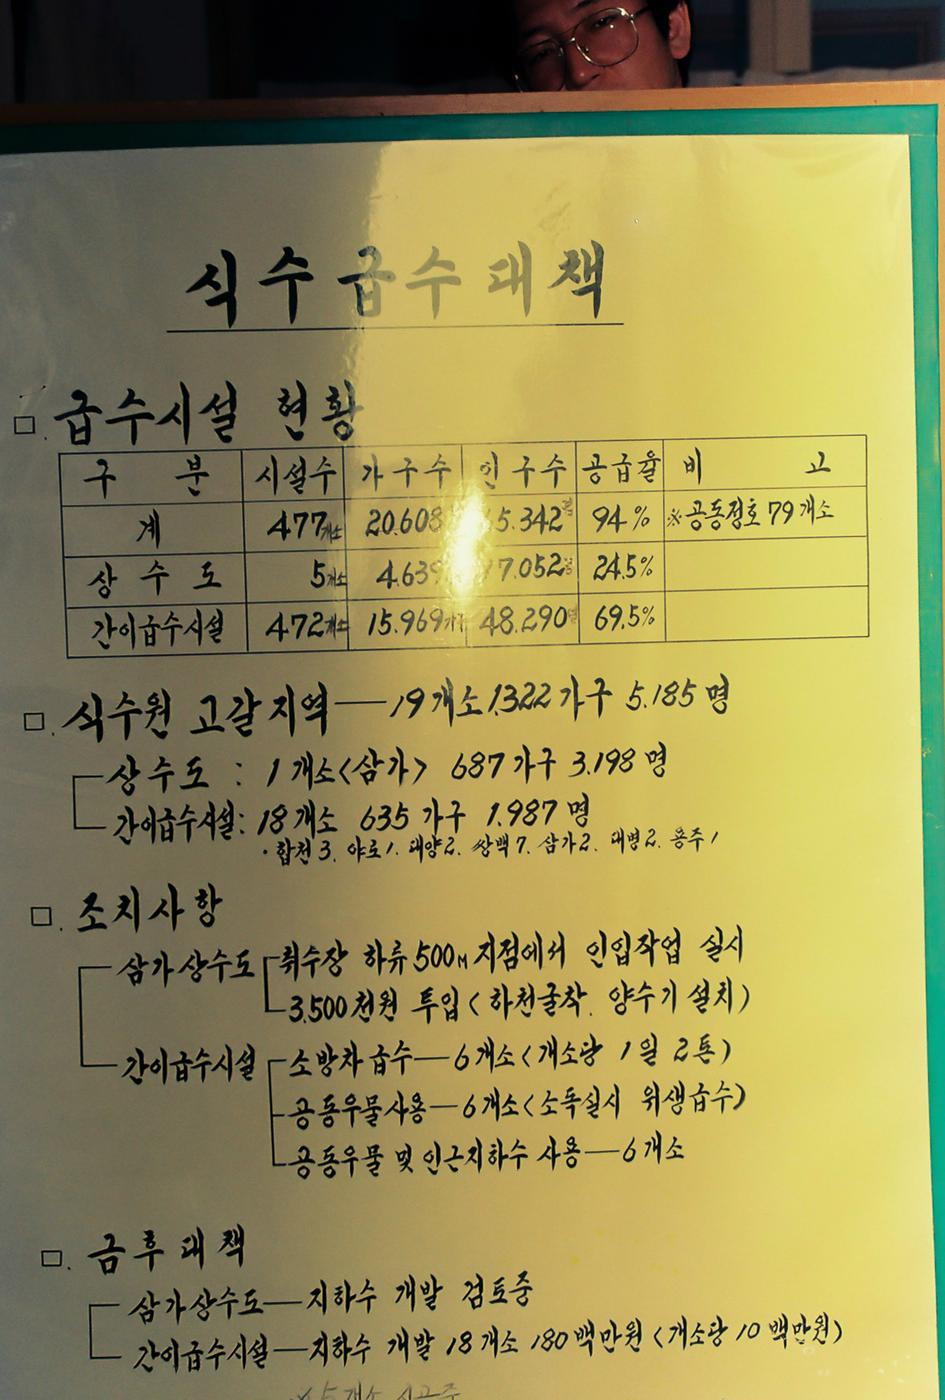 식수 급수 대책
□. 급수시설 현황
구 분 시설수 가구수 인구수 공급율 비 고
계 477개소 20.608 65.342명 94% ※공동정호 79개소
상수도 5개소 4.639 17.052명 24.5%
간이급수시설 472개소 15.969가구 48.290명 69.5%
□. 식수원 고갈지역 — 19개소 1.322가구 5.185명
상수도 : 1개소<삼가> 687가구 3.198명
간이급수시설 : 18개소 635가구 1.987명
· 합천3. 야로1. 대양2. 쌍백7. 삼가2. 대병2. 용주1
□. 조치사항
삼가상수도 취수장 하류 500M 지점에서 인입작업 실시
3.500천원 투입 < 하천굴착. 양수기 설치 )
간이급수시설 소방차 급수 — 6개소 < 개소당 1일 2톤 )
공동우물사용 — 6개소 < 소독실시 위생급수 )
공동우물 및 인근지하수 사용 — 6개소
□. 금후대책
삼가상수도 — 지하수 개발 검토중
간이급수시설 — 지하수 개발 18개소 180백만원 < 개소당 10백만원 )
※ 5개소 시공중